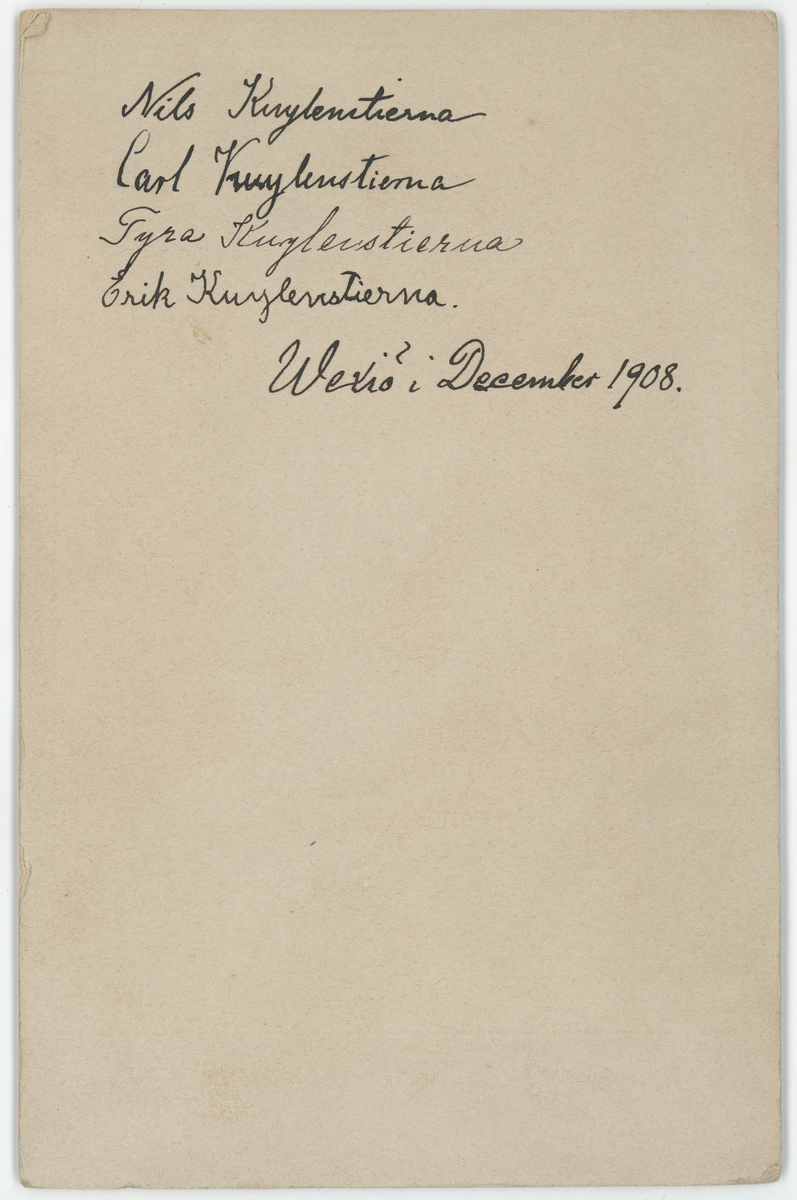 Nils Kuylenstierna
Carl Kuylenstierna
Tyra Kuylenstierna
Erik Kuylenstierna.
Wexiö i December 1908.